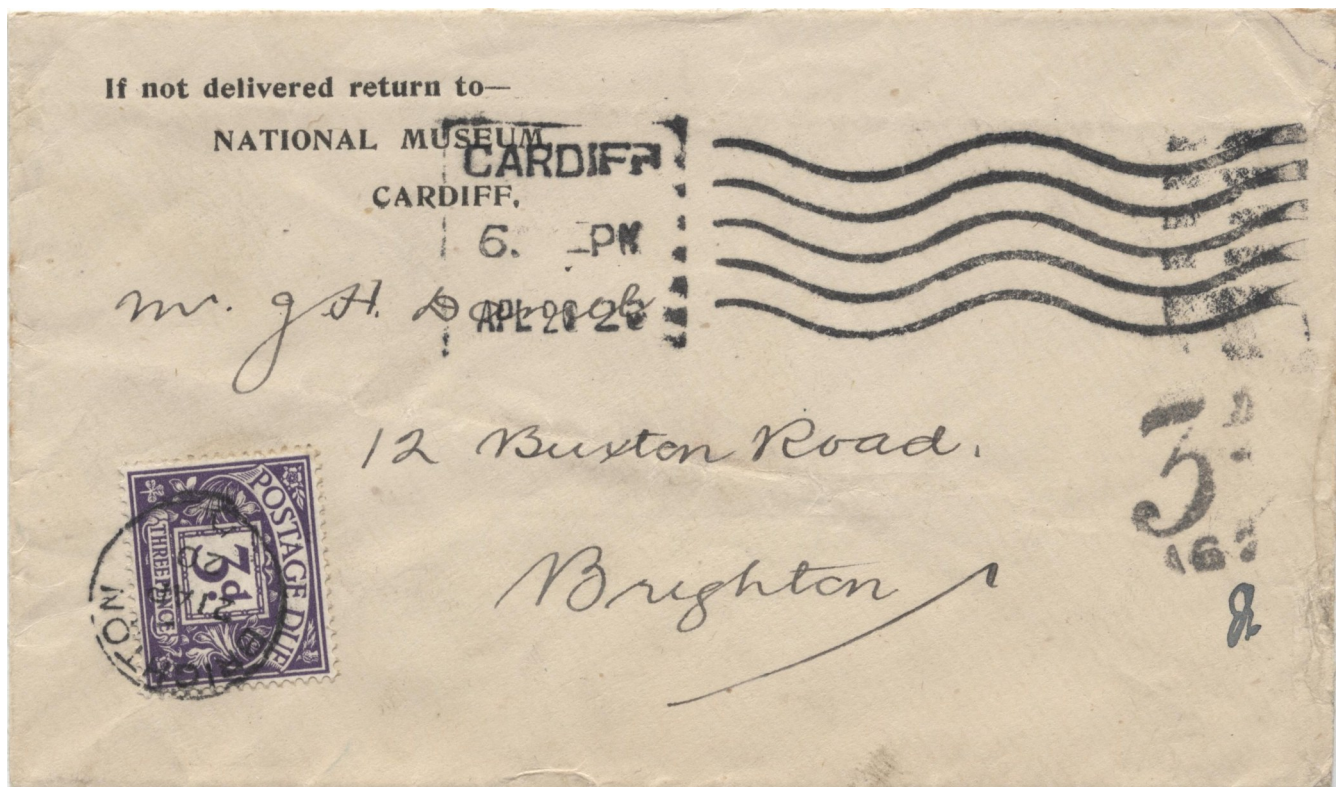 If not delivered return to—
NATIONAL MUSEUM
CARDIFF.
CARDIFF
6. - PM
APL 20
Mr. J H.
12 Buxton Road.
Brighton
POSTAGE DUE
3d.
THREE PENCE
BRIGHTON
3D